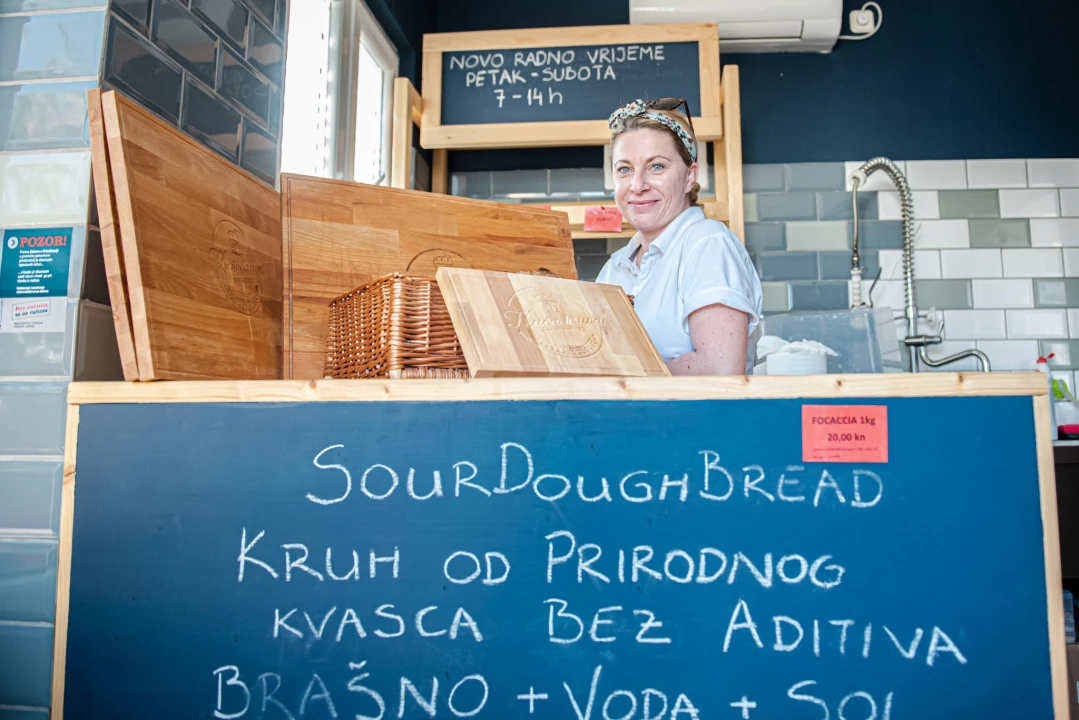 NOVO RADNO VRIJEME
PETAK - SUBOTA
7 - 14 h
POZOR!
Bez računa
se ne računa
FOCACCIA 1kg
20,00 kn
SOURDOUGHBREAD
KRUH OD PRIRODNOG
KVASCA BEZ ADITIVA
BRAŠNO + VODA + SOL